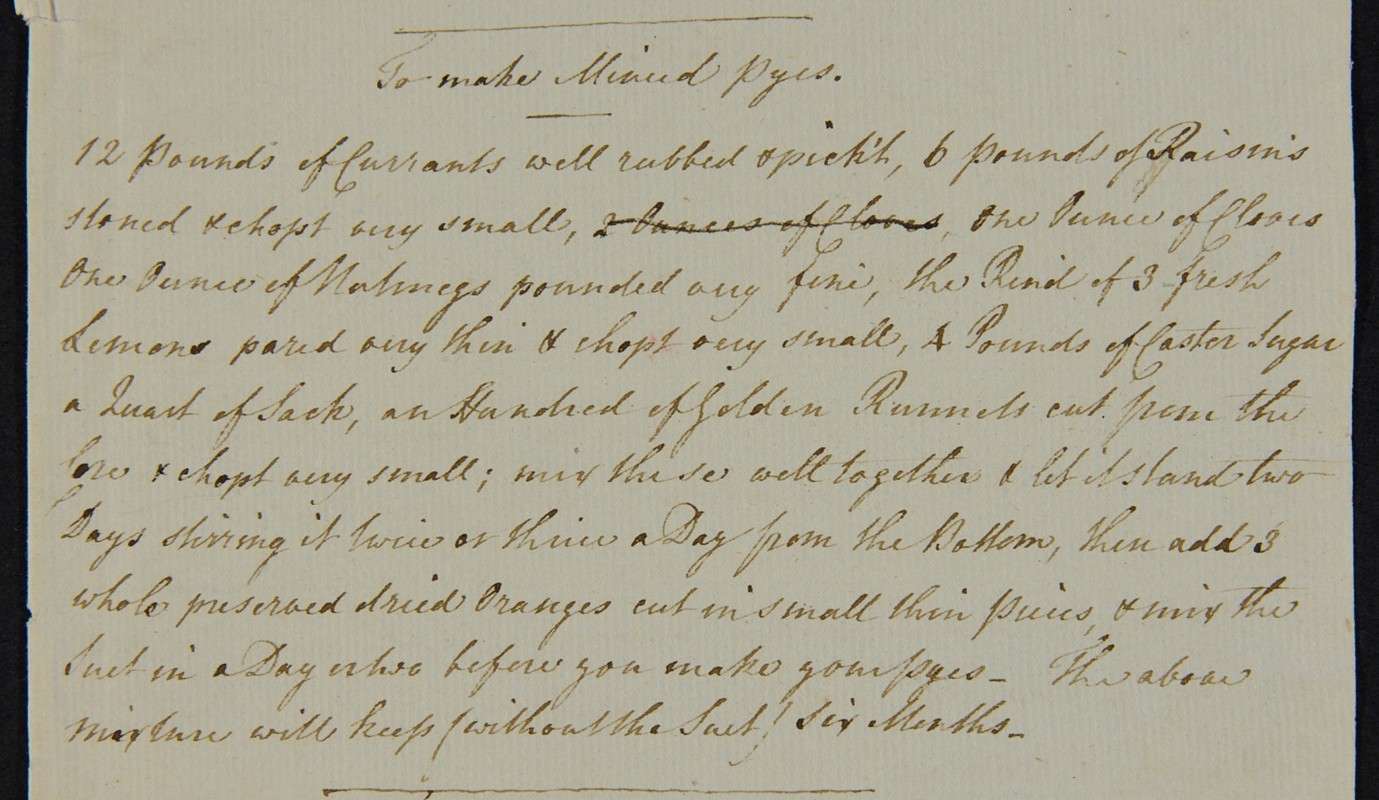 To make Minced Pyes.
12 Pounds of Currants well rubbed & pick't, 6 pounds of Raisins
stoned & chopt very small, 2 Ounces of Cloves, One Ounce of Cloves
One Ounce of Nutmegs pounded very fine, the Rind of 3 fresh
Lemons pared very thin & chopt very small, 4 Pounds of Caster Sugar
a Quart of Sack, an Hundred of Golden Runnets cut from the
Core & chopt very small; mix these well together & let it stand two
Days stirring it twice or thrice a Day from the Bottom, then add 3
whole preserved dried Oranges cut in small thin pieces, & mix the
Suet in a Day or two before you make your Pyes - The above
mixture will keep (without the Suet) Six Months -